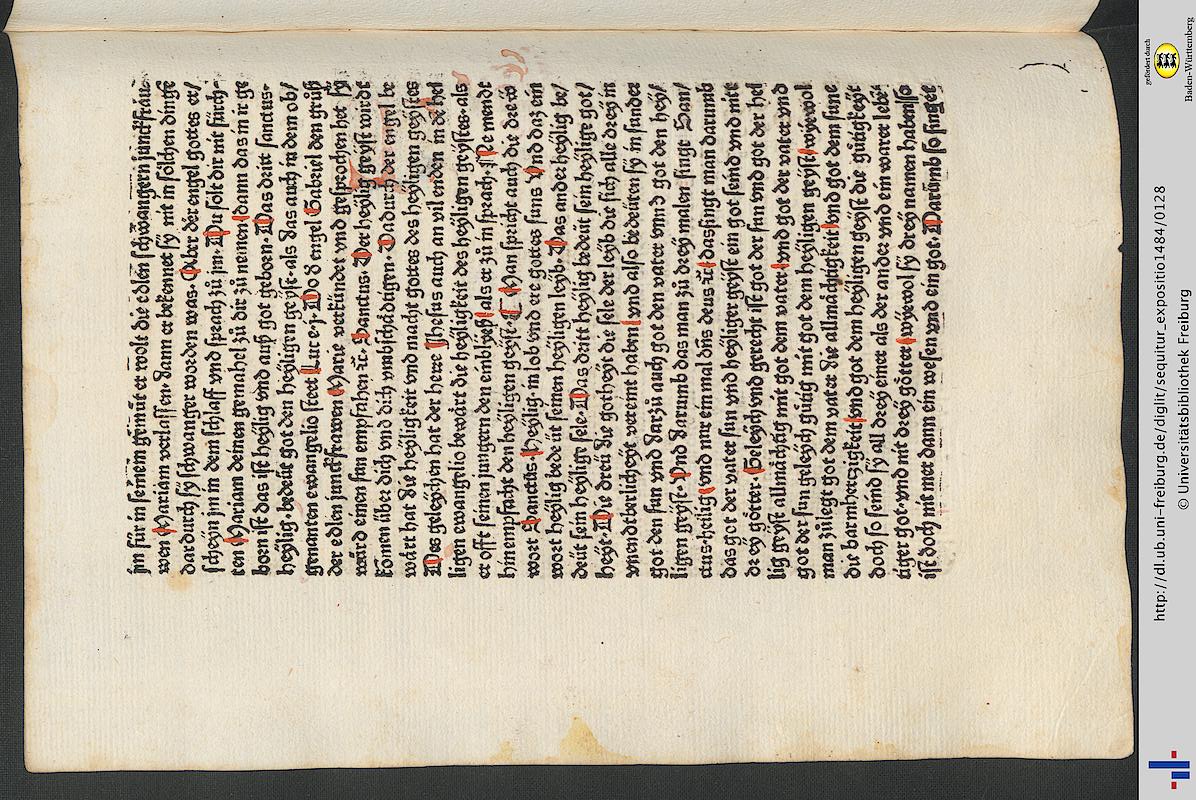 jm für in seinem gemüt er wolt die edlen schwangern junckfrau-
wen Mariam verlassen. dann er bekennet sy nit in sölchen dinge
dardurch sy schwanger worden was. Aber der engel gottes er/
scheyn jm in dem schlaff vnd sprach zů jm. Du solt dir nit fürch-
ten Mariam deinen gemahel zů dir zů nemen dann das in ir ge
born ist das ist heylig vnd auß got geborn. Das dritt sanctus.
heylig. bedeüt got den heyligen geyst. als das auch in dem ob/
genanten ewangelio steet Luce. j. Do d engel Gabriel den gruß
der edlen junckfrawen Marie verkündet vnd gesprochen het sy
würd einen sun empfahen ꝛc. Sanctus. Der heylig geyst würdt
komen über dich vnd dich vmbschädigen. Dadurch der engel be
wärt hat die heyligkeit vnd macht gottes des heyligen geystes
Des geleychen hat der herre Jhesus auch an vil enden in dē hei
ligen ewangelio bewärt die heyligkeit des heyligen geystes. als
er offt seinen jungern den einblies als er zů in sprach. Ne mendt
hin empfacht den heyligen geyst. Man spricht auch die dreü
wort Sanctus. Heylig. in lob vnd ere gottes suns vnd daz ein
wort heylig bedeüt seinen heyligen leyb. Das ander heylig be/
deüt sein heylige sele. Das dritt heylig bedeüt sein heylige got/
heyt. Die dreü die gotheyt die sele der leyb die sich alle dreü in
vnendtberlicheyt vereint haben vnd also bedeüten sy in sunder
got den sun vnd darzů auch got den vater vnnd got den hey/
ligen geyst. Vnd darumb das man zů dreymalen singt San/
ctus. heilig vnd nur ein mal dn̄s deus ꝛc das singt man darumb
das got der vater sun vnd heyliger geyst ein got seind vnd nitt
drey götter. Geleych vnd gerecht ist got der sun vnd got der hei
lig geyst allmächtig mit got dem vater vnd got der vater vnd
got der sun geleych gütig mit got dem heyligen geyst wyewol
man zůlegt got dem vater die allmächtigkeit vnd got dem sune
die barmhertzigkeit vnd got dem heyligen geyst die gütigkeyt
doch so seind sy all drey einer als der ander vnd ein warer lebē
tiger got. vnd nit drey götter wyewol sy drey namen haben so
ist doch nit mer dann ein wesen vnd ein got. Darumb so singet
http://dl.ub.uni-freiburg.de/diglit/sequitur_expositio1484/0128
© Universitätsbibliothek Freiburg
gefördert durch
Baden-Württemberg